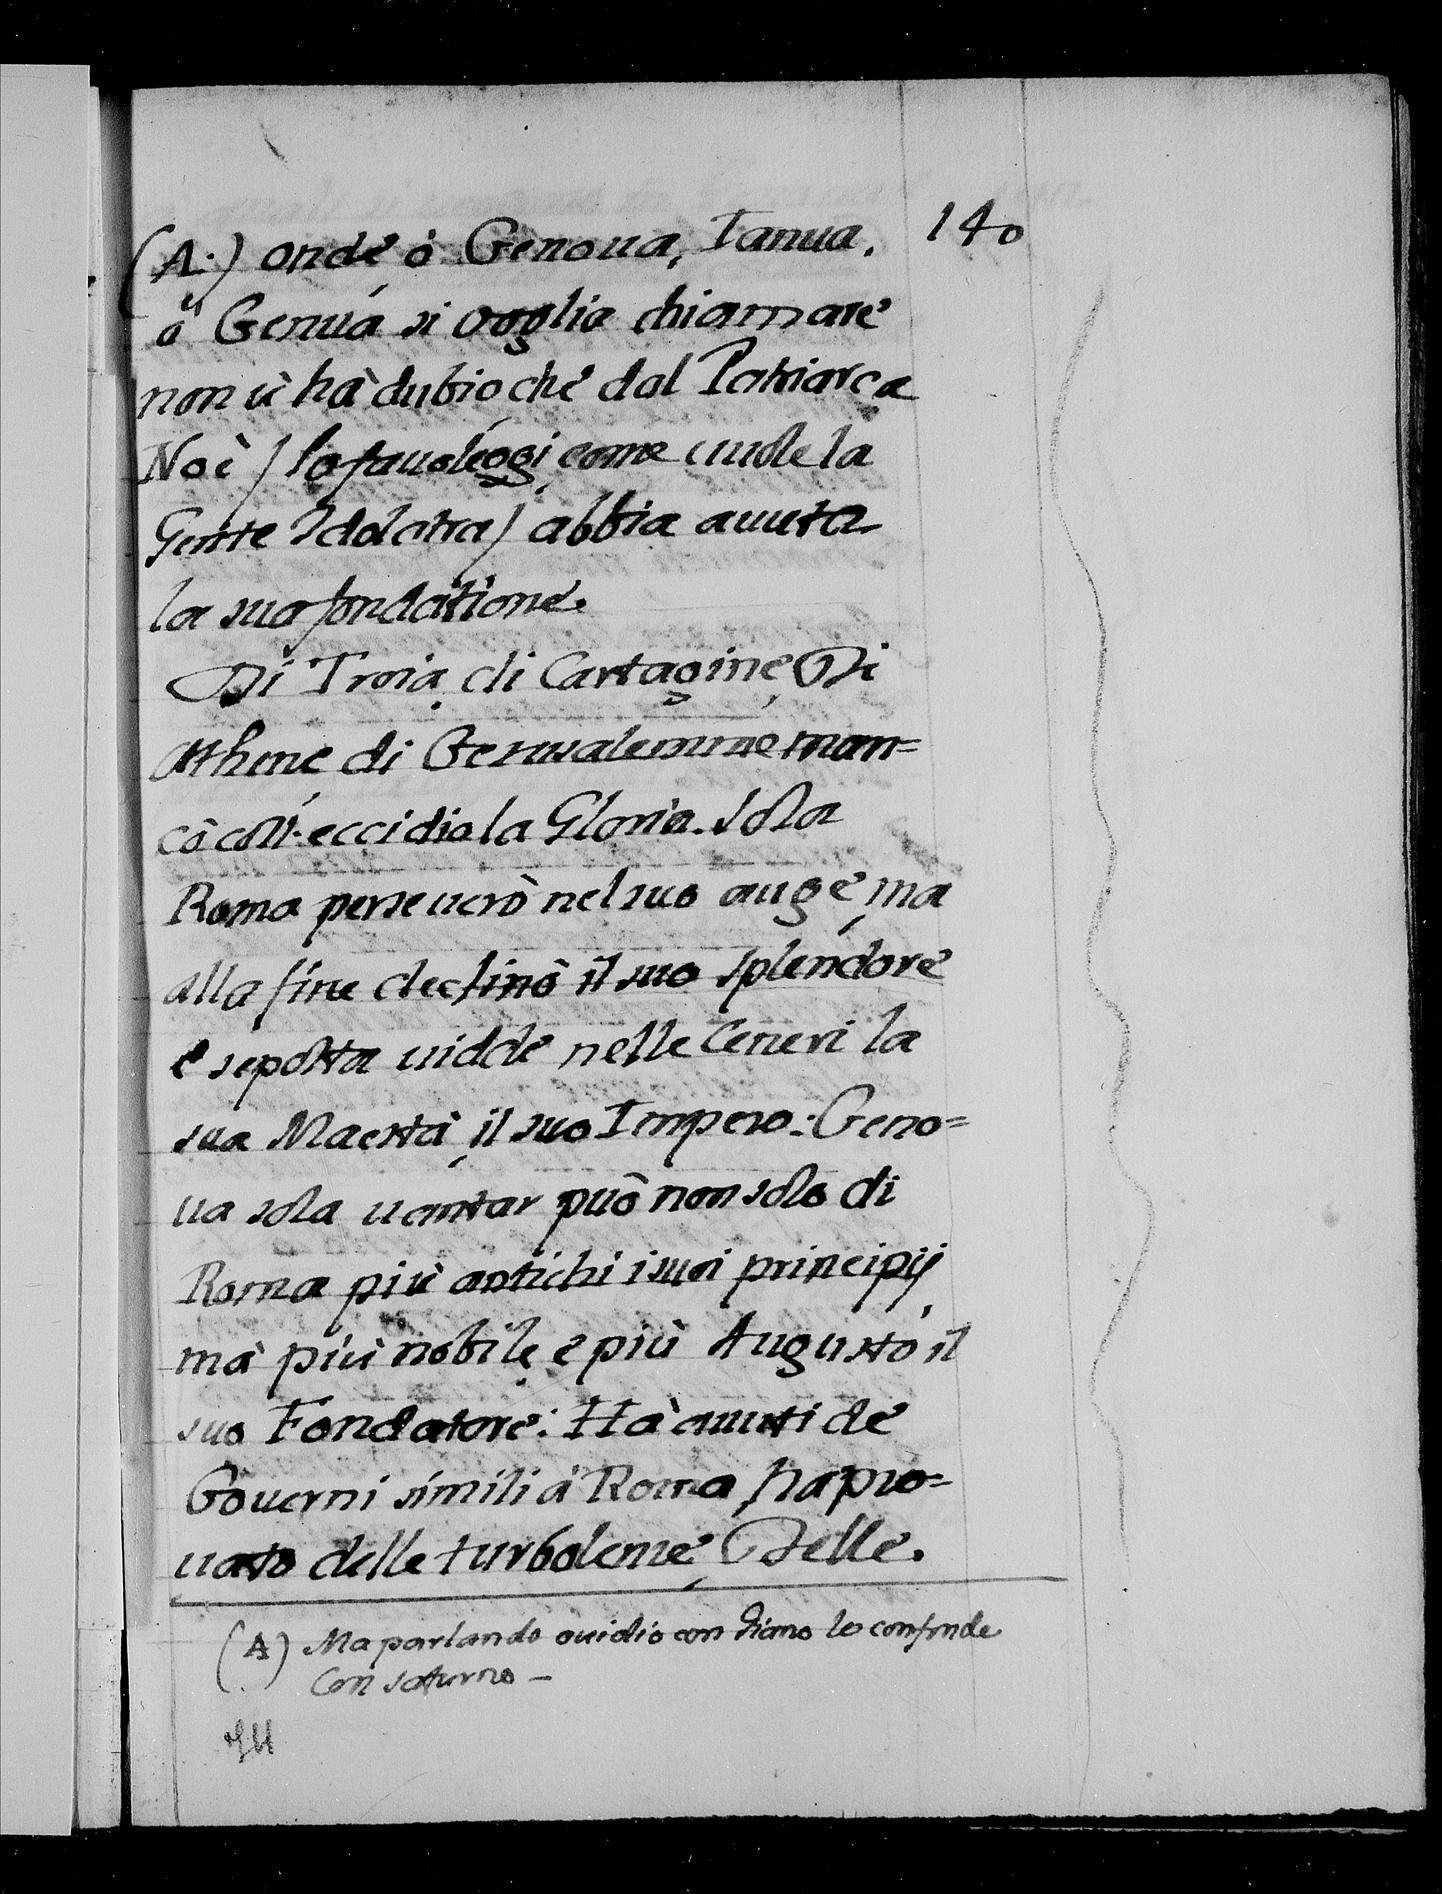 140
(A.) onde ò Genoua, Ianua,
ò Genua si voglia chiamare
non u' hà dubio che dal Patriarca
Noè / lo fauoleggi, come uuole la
Gente Idolatra / abbia auuta
la sua fondatione.
Di Troia, di Cartagine, Di
Athene, di Gerusalemme man=
cò coll' eccidio la Gloria. Sola
Roma perseuerò nel suo auge, ma
alla fine declinò il suo splendore
e sepolta uidde nelle Ceneri la
sua Maestà, il suo Impero: Geno=
ua sola uantar può non solo di
Roma più antichi i suoi principij,
mà più nobile, e più Augusto il
suo Fondatore: Hà auuti de
Gouerni simili à Roma, hà pro=
uato delle turbolenze, Delle.
(A) Ma parlando ouidio con Giano lo confonde
Con saturno —